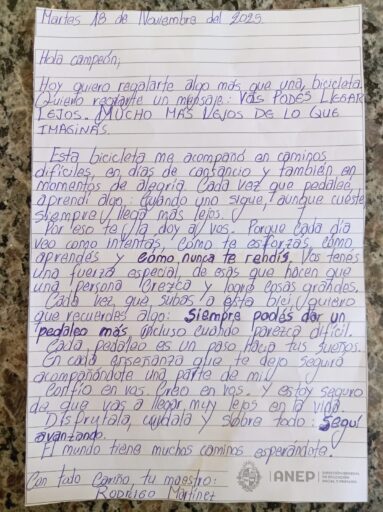 Martes 18 de Noviembre del 2025
Hola campeón;
Hoy quiero regalarte algo más que una bicicleta.
Quiero regalarte un mensaje: VOS PODÉS LLEGAR
LEJOS. MUCHO MÁS LEJOS DE LO QUE
IMAGINAS.
Esta bicicleta me acompañó en caminos
difíciles, en días de cansancio y también en
momentos de alegría. Cada vez que pedaleo,
aprendí algo: cuando uno sigue, aunque cueste
siempre llega más lejos.
Por eso te la doy a vos. Porque cada día
veo como intentás, cómo te esforzás, cómo
aprendés y cómo nunca te rendís. Vos tenés
una fuerza especial, de esas que hacen que
una persona crezca y logre cosas grandes.
Cada vez que subas a esta bici, quiero
que recuerdes algo: Siempre podés dar un
pedaleo más, incluso cuando parezca difícil.
Cada pedaleo es un paso hacia tus sueños.
En cada enseñanza que te dejo seguirá
acompañándote una parte de mí.
Confío en vos. Creo en vos. Y estoy seguro
de que vas a llegar muy lejos en la vida.
Disfrutala, cuidala y sobre todo: Seguí
avanzando.
El mundo tiene muchos caminos esperándote.
Con todo cariño, tu maestro:
Rodrigo Martínez
ANEP
DIRECCIÓN GENERAL
DE EDUCACIÓN
INICIAL Y PRIMARIA